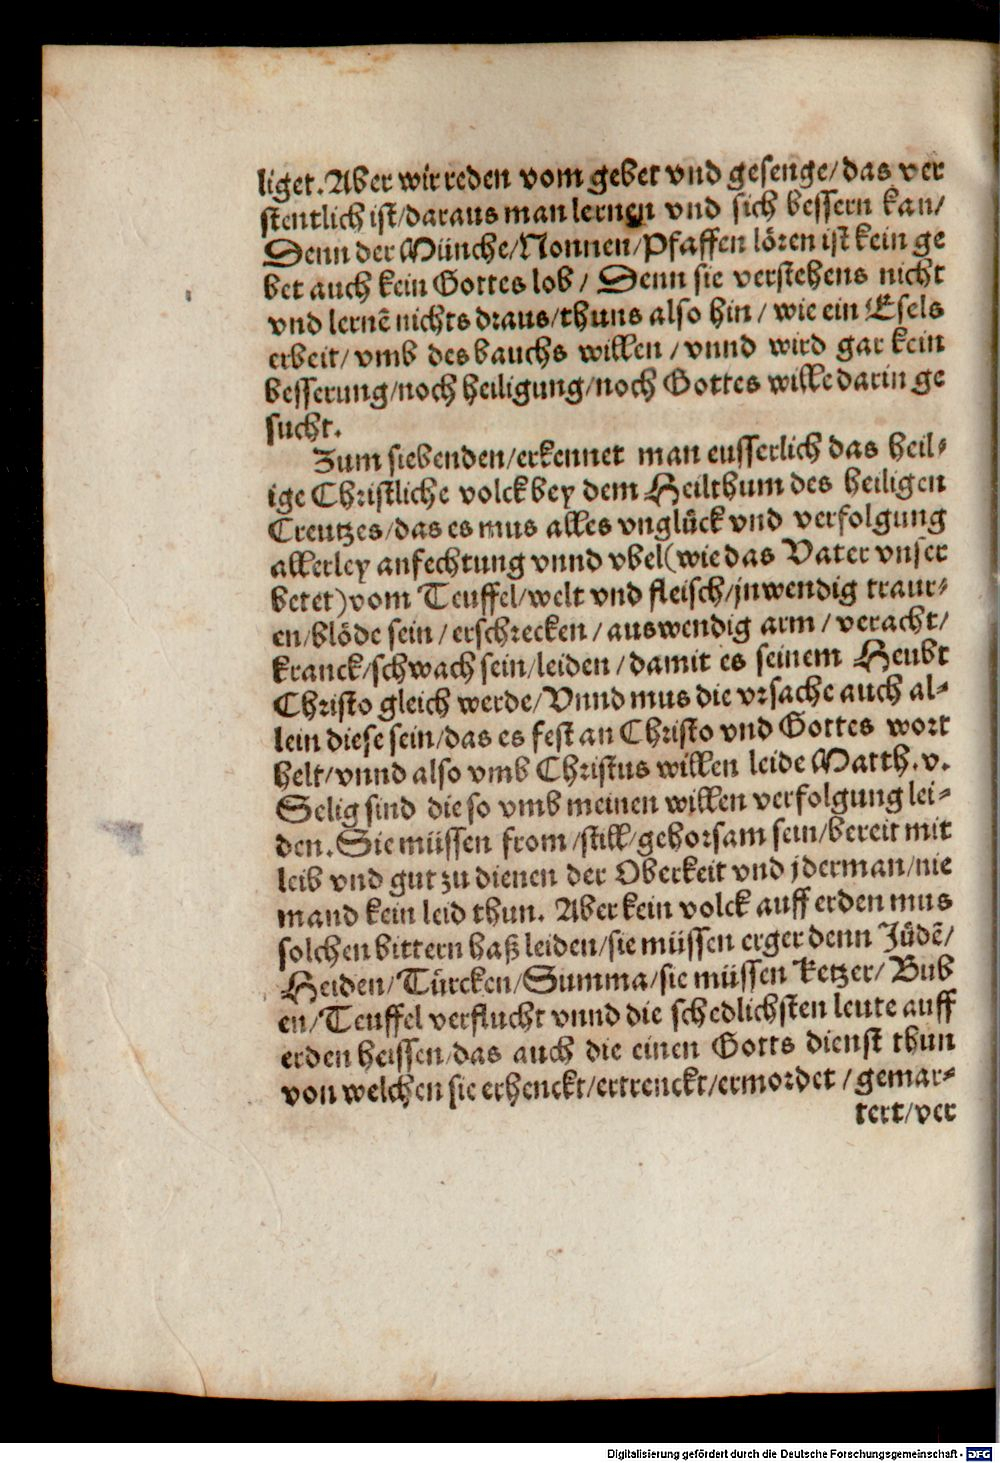 liget. Aber wir reden vom gebet vnd gesenge/das ver
stentlich ist/daraus man lernen vnd sich bessern kan/
Denn der Münche/Nonnen/Pfaffen lören ist kein ge
bet auch kein Gottes lob/ Denn sie verstehens nicht
vnd lernē nichts draus/thuns also hin/ wie ein Esels
erbeit/ vmb des bauchs willen/ vnnd wird gar kein
besserung/noch heiligung/noch Gottes wille darin ge
sucht.
Zum siebenden/erkennet man eusserlich das heil-
ige Christliche volck bey dem Heilthum des heiligen
Creutzes/das es mus alles vnglück vnd verfolgung
allerley anfechtung vnnd vbel(wie das Vater vnser
betet)vom Teuffel/welt vnd fleisch/jnwendig traur-
en/blöde sein/ erschrecken/ auswendig arm/ veracht/
kranck/schwach sein/leiden/ damit es seinem Heubt
Christo gleich werde/Vnnd mus die vrsache auch al-
lein diese sein/das es fest an Christo vnd Gottes wort
helt/vnnd also vmb Christus willen leide Matth. v.
Selig sind die so vmb meinen willen verfolgung lei-
den. Sie müssen from/still/gehorsam sein/bereit mit
leib vnd gut zu dienen der Oberkeit vnd jderman/nie
mand kein leid thun. Aber kein volck auff erden mus
solchen bittern haß leiden/sie müssen erger denn Jüdē/
Heiden/Türcken/Summa/sie müssen Ketzer/ Bub
en/Teuffel verflucht vnnd die schedlichsten leute auff
erden heissen/das auch die einen Gotts dienst thun
von welchen sie erhenckt/ertrenckt/ermordet/gemar-
tert/ver
Digitalisierung gefördert durch die Deutsche Forschungsgemeinschaft - DFG